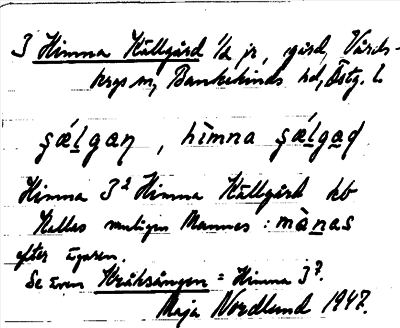 3 Himna Källgård 1/2 jr, gård, Vårds-
krgs sn, Bankekinds hd, Östg. l.
s̨ǽlgaɳ, hìmna s̨ǽlgaɖ
Himna 3² Himna Källgård kb
Kallas vanligen Mannes: mànas
efter ägaren.
Se även Kråksången = Himna 3⁷.
Maja Nordlund 1947.